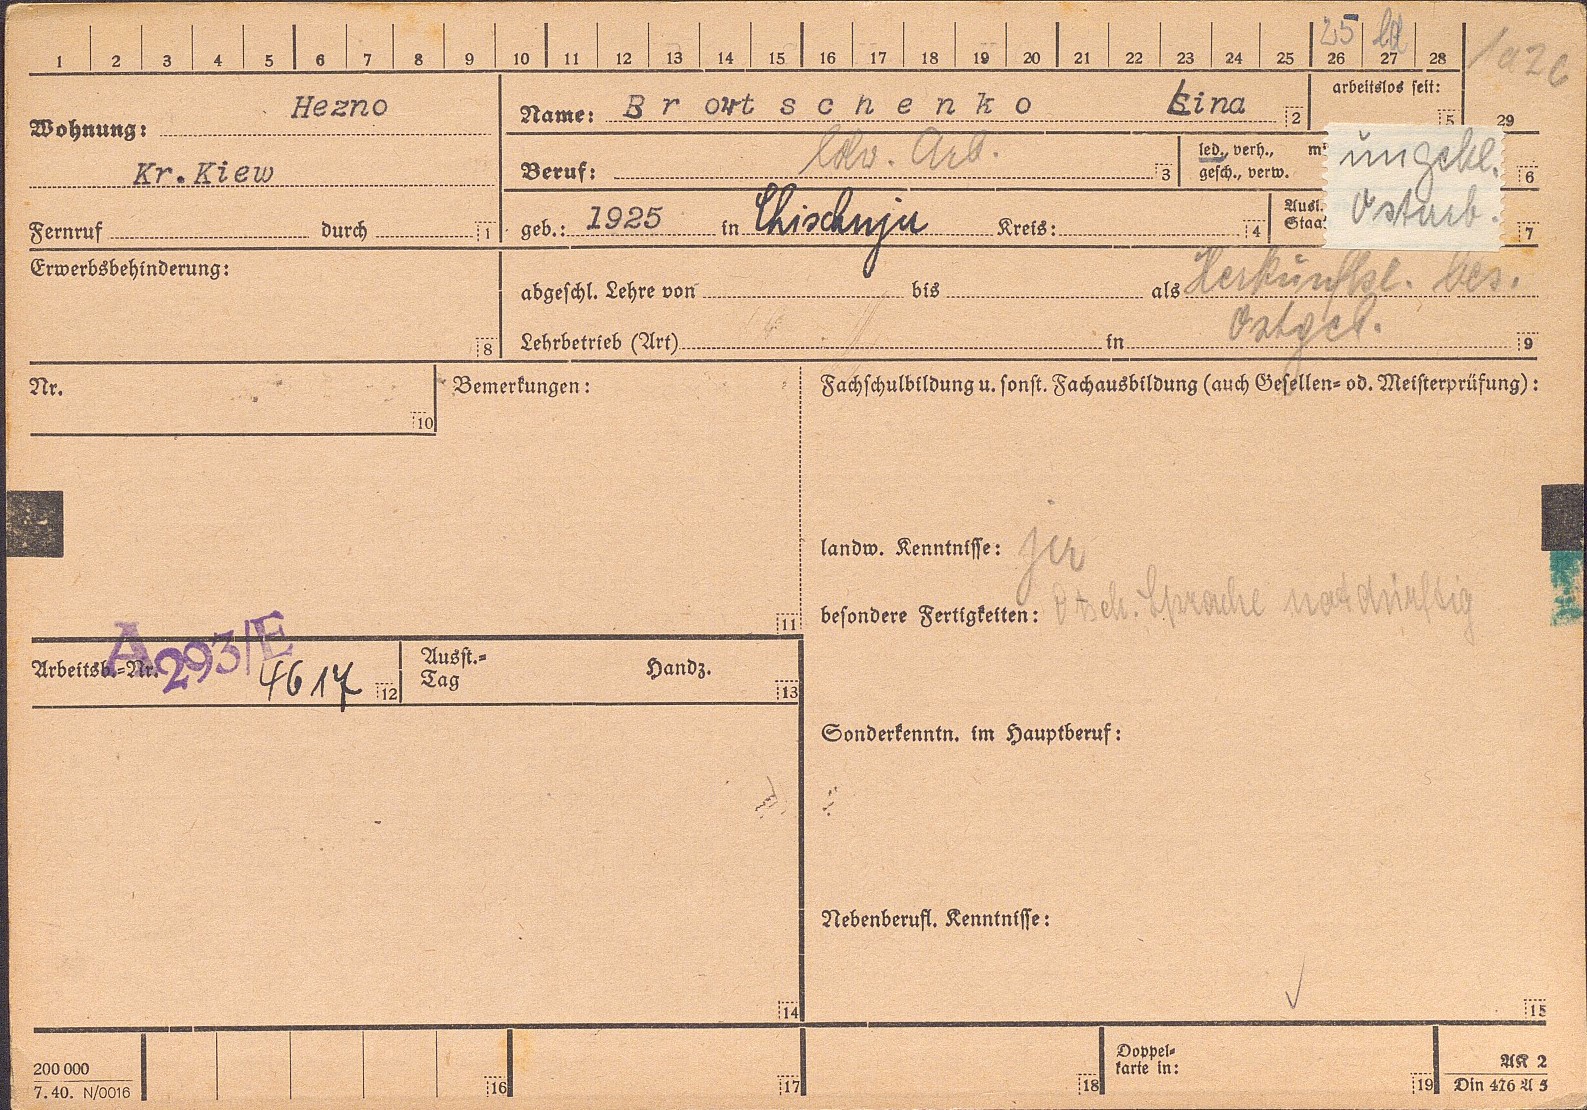 25 ld
1a26
1 2 3 4 5 6 7 8 9 10 11 12 13 14 15 16 17 18 19 20 21 22 23 24 25 26 27 28
29
Wohnung: Hezno
Kr.Kiew
Fernruf durch 1
Name: Brortschenko Lina 2
arbeitslos seit: 5
Beruf: ldw. Arb. 3
led., verh.,
gesch., verw.
6
geb.: 1925 in Kreis: 4
Ausl.
Staa
7
ungekl.
Ostarb.
Erwerbsbehinderung:
8
abgeschl. Lehre von bis als Herkunftsl. bes.
Ostgeb.
Lehrbetrieb (Art) in 9
Nr.
10
Bemerkungen:
11
Fachschulbildung u. sonst. Fachausbildung (auch Gesellen= od. Meisterprüfung):
landw. Kenntnisse: ja
besondere Fertigkeiten: dtsch. Sprache notdürftig
Sonderkenntn. im Hauptberuf:
Nebenberufl. Kenntnisse:
15
A 293/E
Arbeitsb.=Nr. 4617 12
Ausst.=
Tag
Handz.
13
14
200 000
7. 40. N/0016
16
17
18
Doppel=
karte in:
19
AK 2
Din 476 A 5